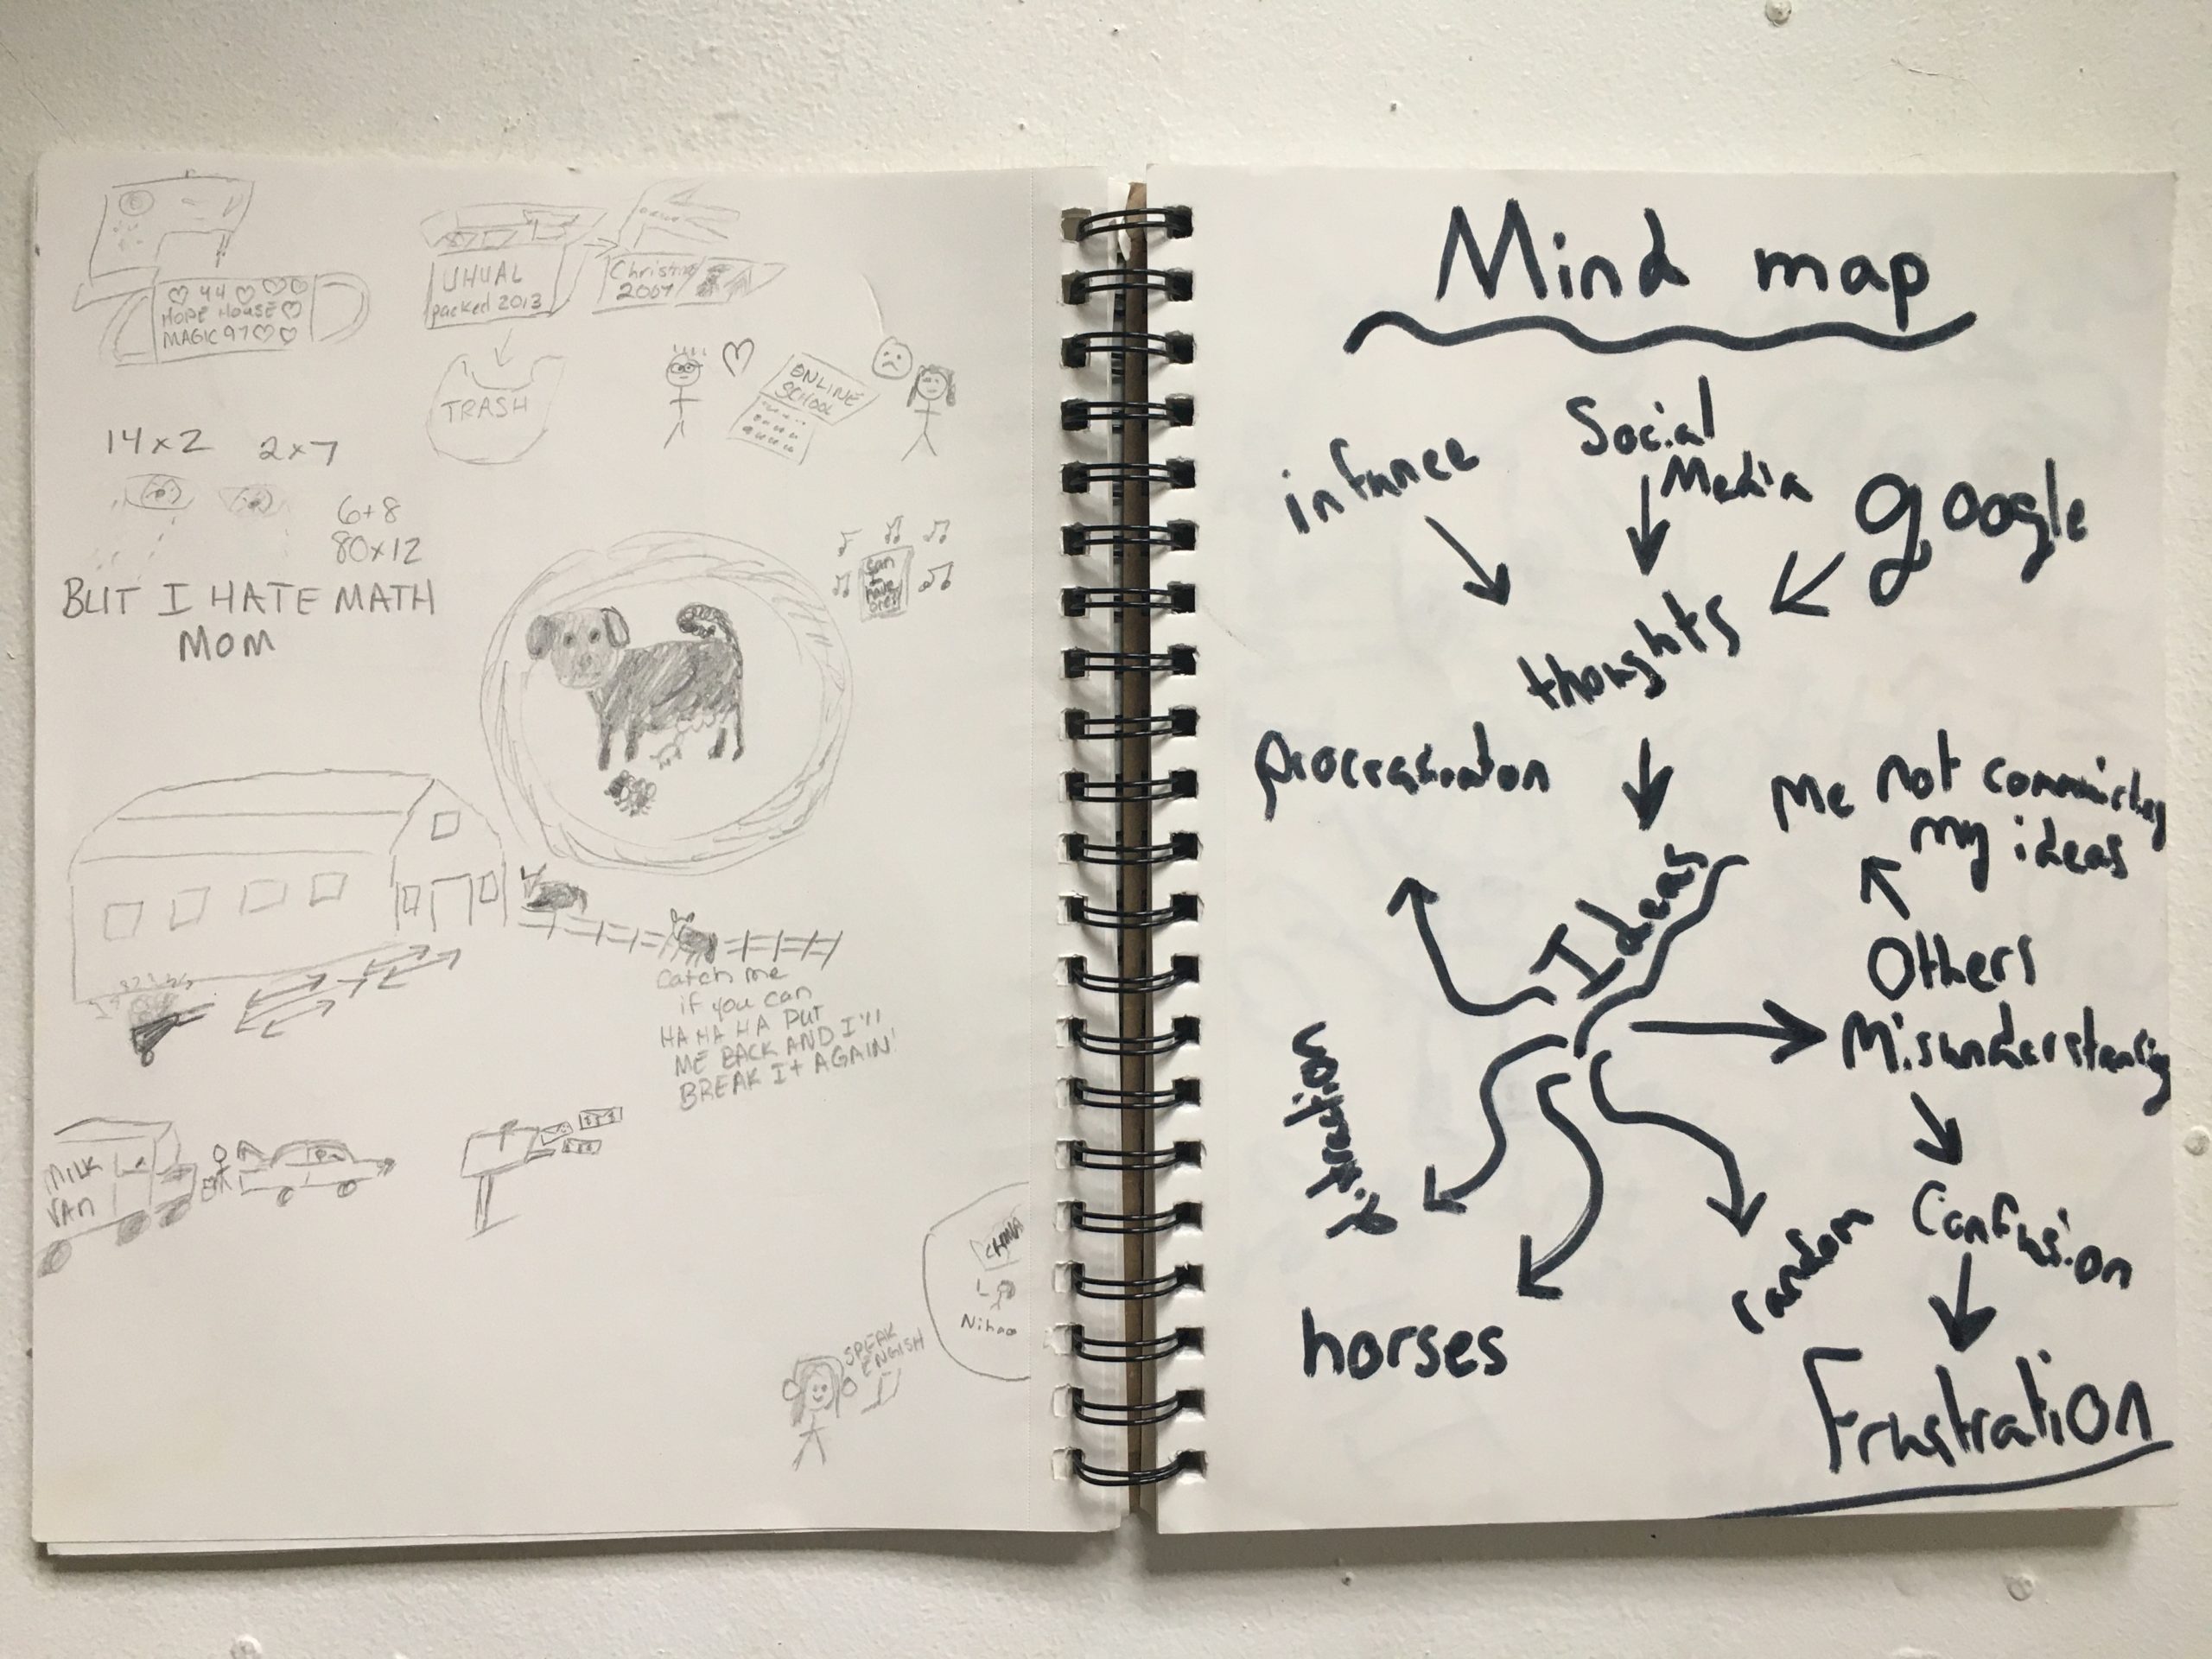 ♡ 44 ♡ ♡ ♡
HOPE HOUSE ♡
MAGIC 97 ♡ ♡
UHUAL
packed 2013
TRASH
ONLINE
SCHOOL
14x2 2x7
6+8
80x12
BUT I HATE MATH
MOM
Catch me
if you can
HA HA HA PUT
ME BACK AND I'll
BREAK It AGAIN!
MILK
VAN
CHINA
Nihao
SPEAK
ENGISH
Mind map
Social
Media
google
thoughts
Ideas
Me not
my ideas
Others
Confusion
Frustration
random
horses